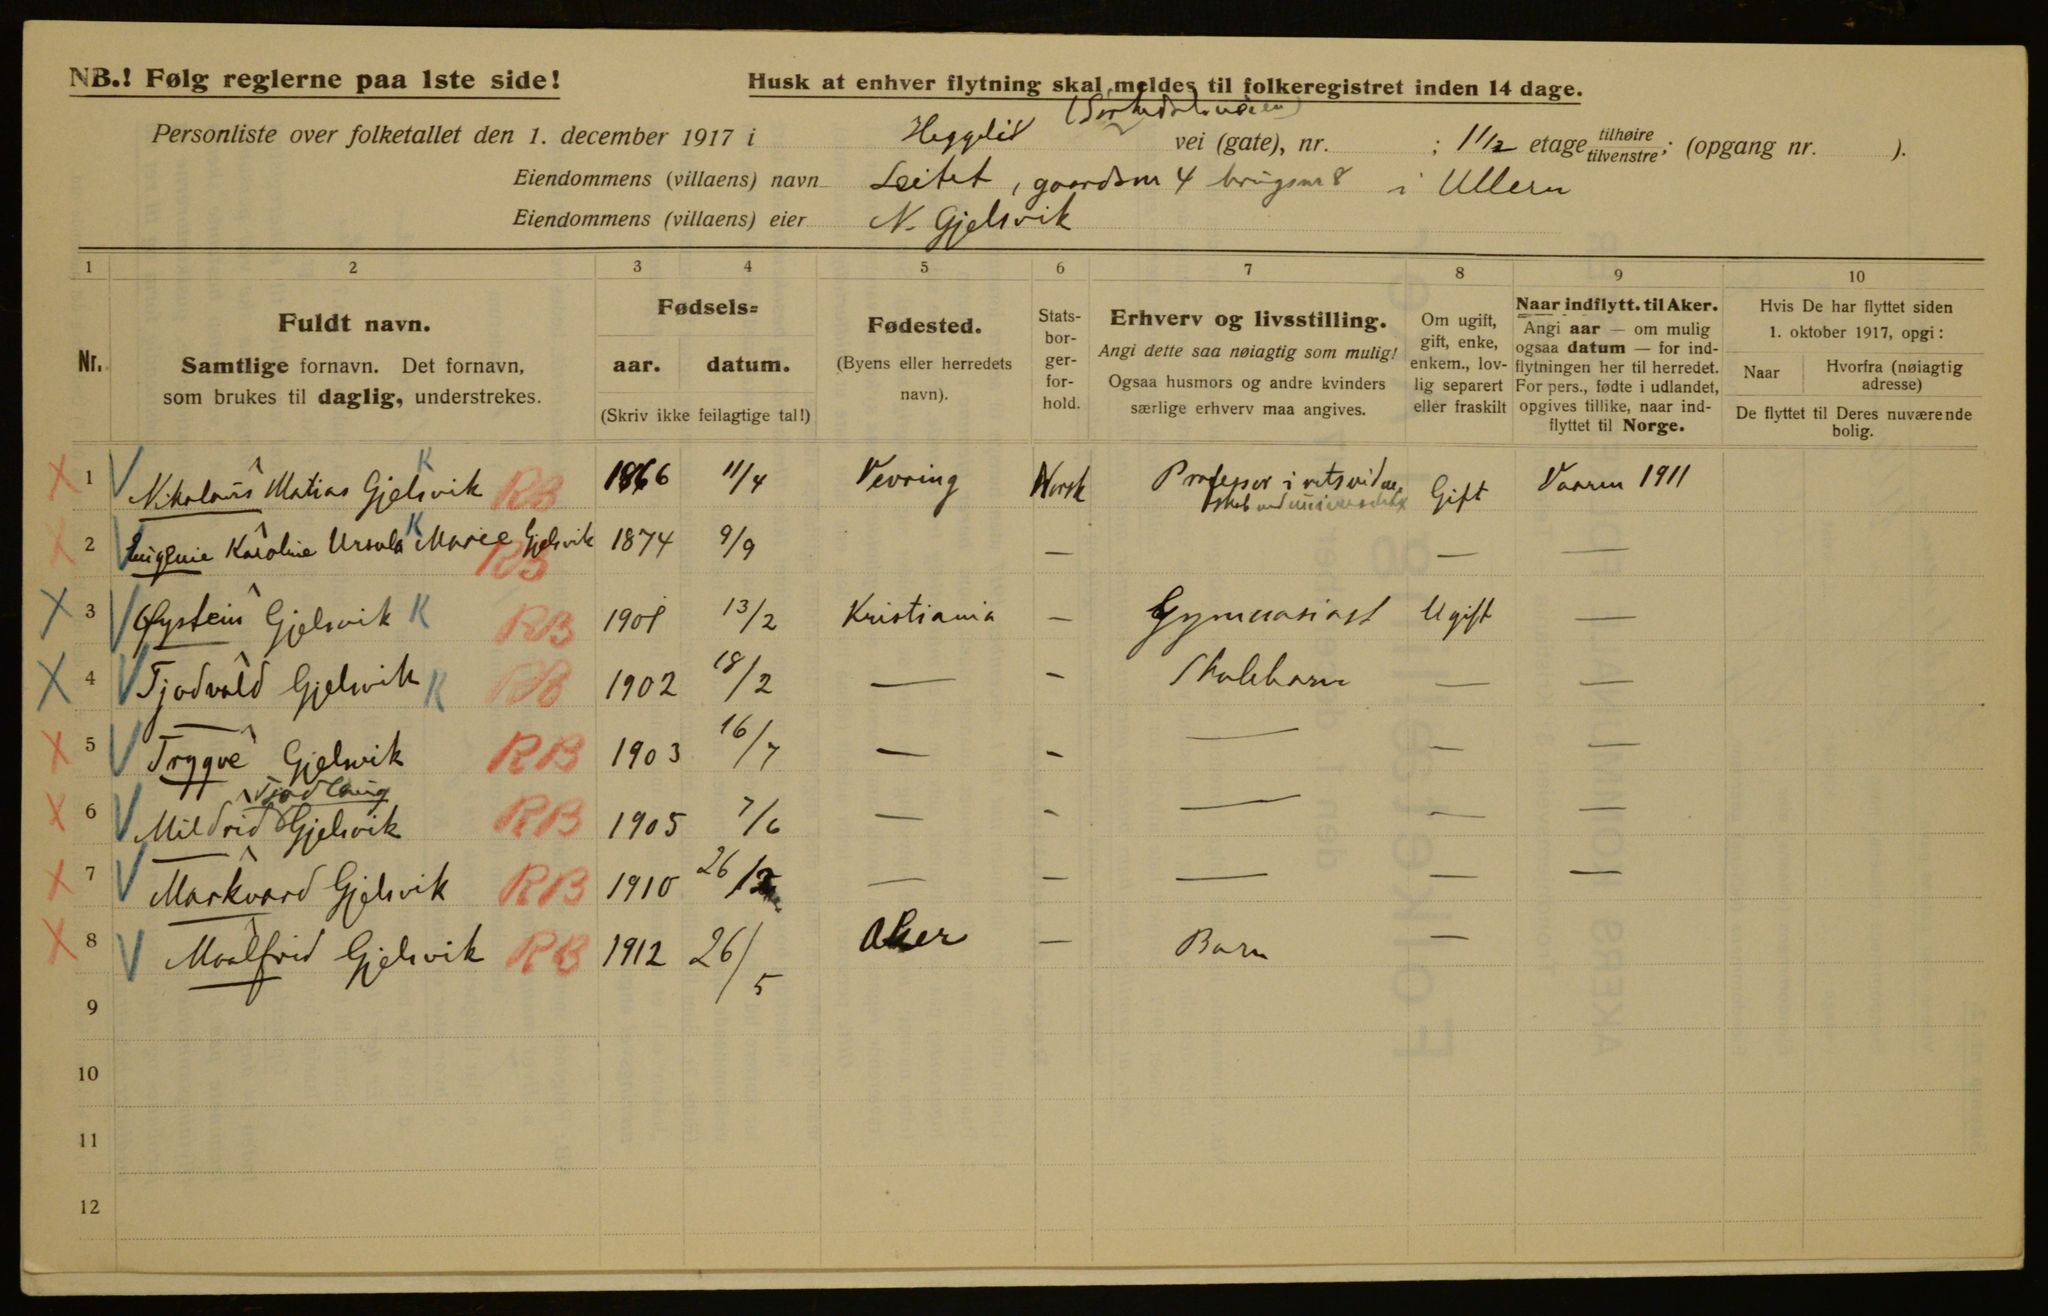 NB.! Følg reglerne paa 1ste side!
Husk at enhver flytning skal meldes til folkeregistret inden 14 dage.
Personliste over folketallet den 1. december 1917 i Heggeli vei (gate), nr. ; 1 1/2 etage tilhøire tilvenstre; (opgang nr. ).
Eiendommens (villaens) navn Leitet, gaardsnr 4 brugsnr 8 i Ullern
Eiendommens (villaens) eier N. Gjelsvik
1 2 3 4 5 6 7 8 9 10
Nr.
Fuldt navn.
Samtlige fornavn. Det fornavn,
som brukes til daglig, understrekes.
Fødsels=
aar. datum.
(Skriv ikke feilagtige tal!)
Fødested.
(Byens eller herredets
navn).
Stats-
bor-
ger-
for-
hold.
Erhverv og livsstilling.
Angi dette saa nøiagtig som mulig!
Ogsaa husmors og andre kvinders
særlige erhverv maa angives.
Om ugift,
gift, enke,
enkem., lov-
lig separert
eller fraskilt
Naar indflytt. til Aker.
Angi aar — om mulig
ogsaa datum — for ind-
flytningen her til herredet.
For pers., fødte i udlandet,
opgives tillike, naar ind-
flyttet til Norge.
Hvis De har flyttet siden
1. oktober 1917, opgi:
Naar
Hvorfra (nøiagtig
adresse)
De flyttet til Deres nuværende
bolig.
X 1 V Nikolaus Matias Gjelsvik K RB 1866 11/4 Vevring Norsk Professor i retsviden- Gift Vaaren 1911
skab ved universitetet
X 2 V Eugenie Karoline Ursula K Marie Gjelsvik RB 1874 9/9 — — —
X 3 V Øystein Gjelsvik K RB 1901 13/2 Kristiania — Gymnasiast Ugift —
X 4 V Tjodvald Gjelsvik K RB 1902 18/2 — - Skolebarn — —
X 5 V Trygve Gjelsvik RB 1903 16/7 — - — — —
Tjodlaug
X 6 V Mildrid Gjelsvik RB 1905 7/6 — - — — —
X 7 V Markvard Gjelsvik RB 1910 26/12 — — — — —
X 8 V Maalfrid Gjelsvik RB 1912 26/5 Aker — Barn —
9
10
11
12